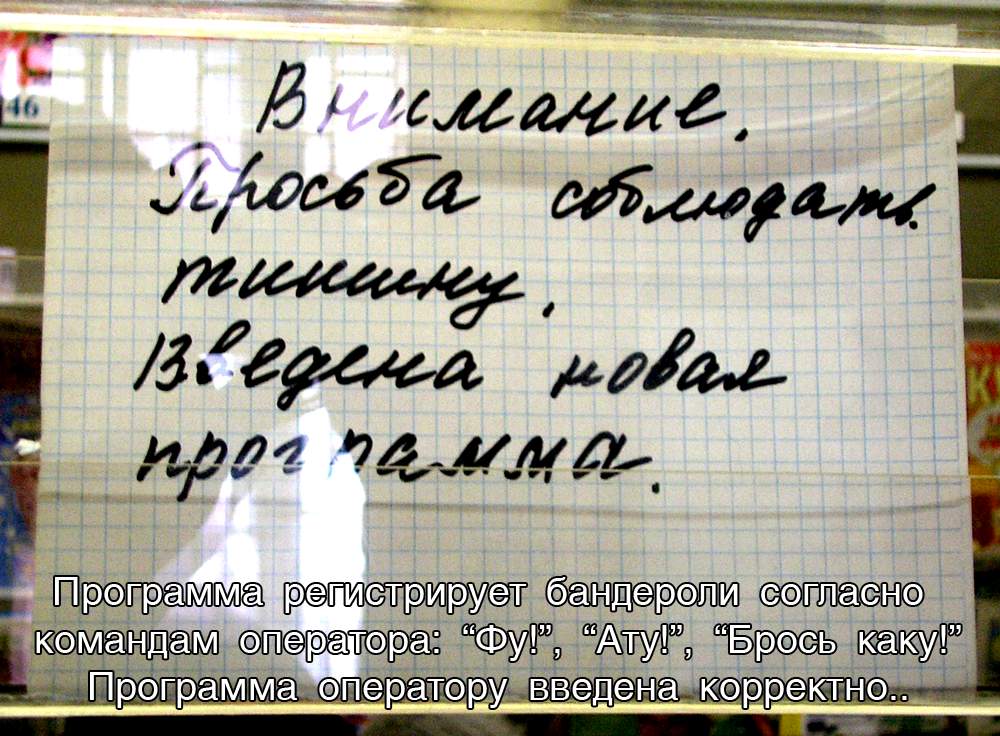 46
Внимание.
Просьба соблюдать
тишину.
Введена новая
программа.
Программа регистрирует бандероли согласно
командам оператора: “Фу!”, “Ату!”, “Брось каку!”
Программа оператору введена корректно..